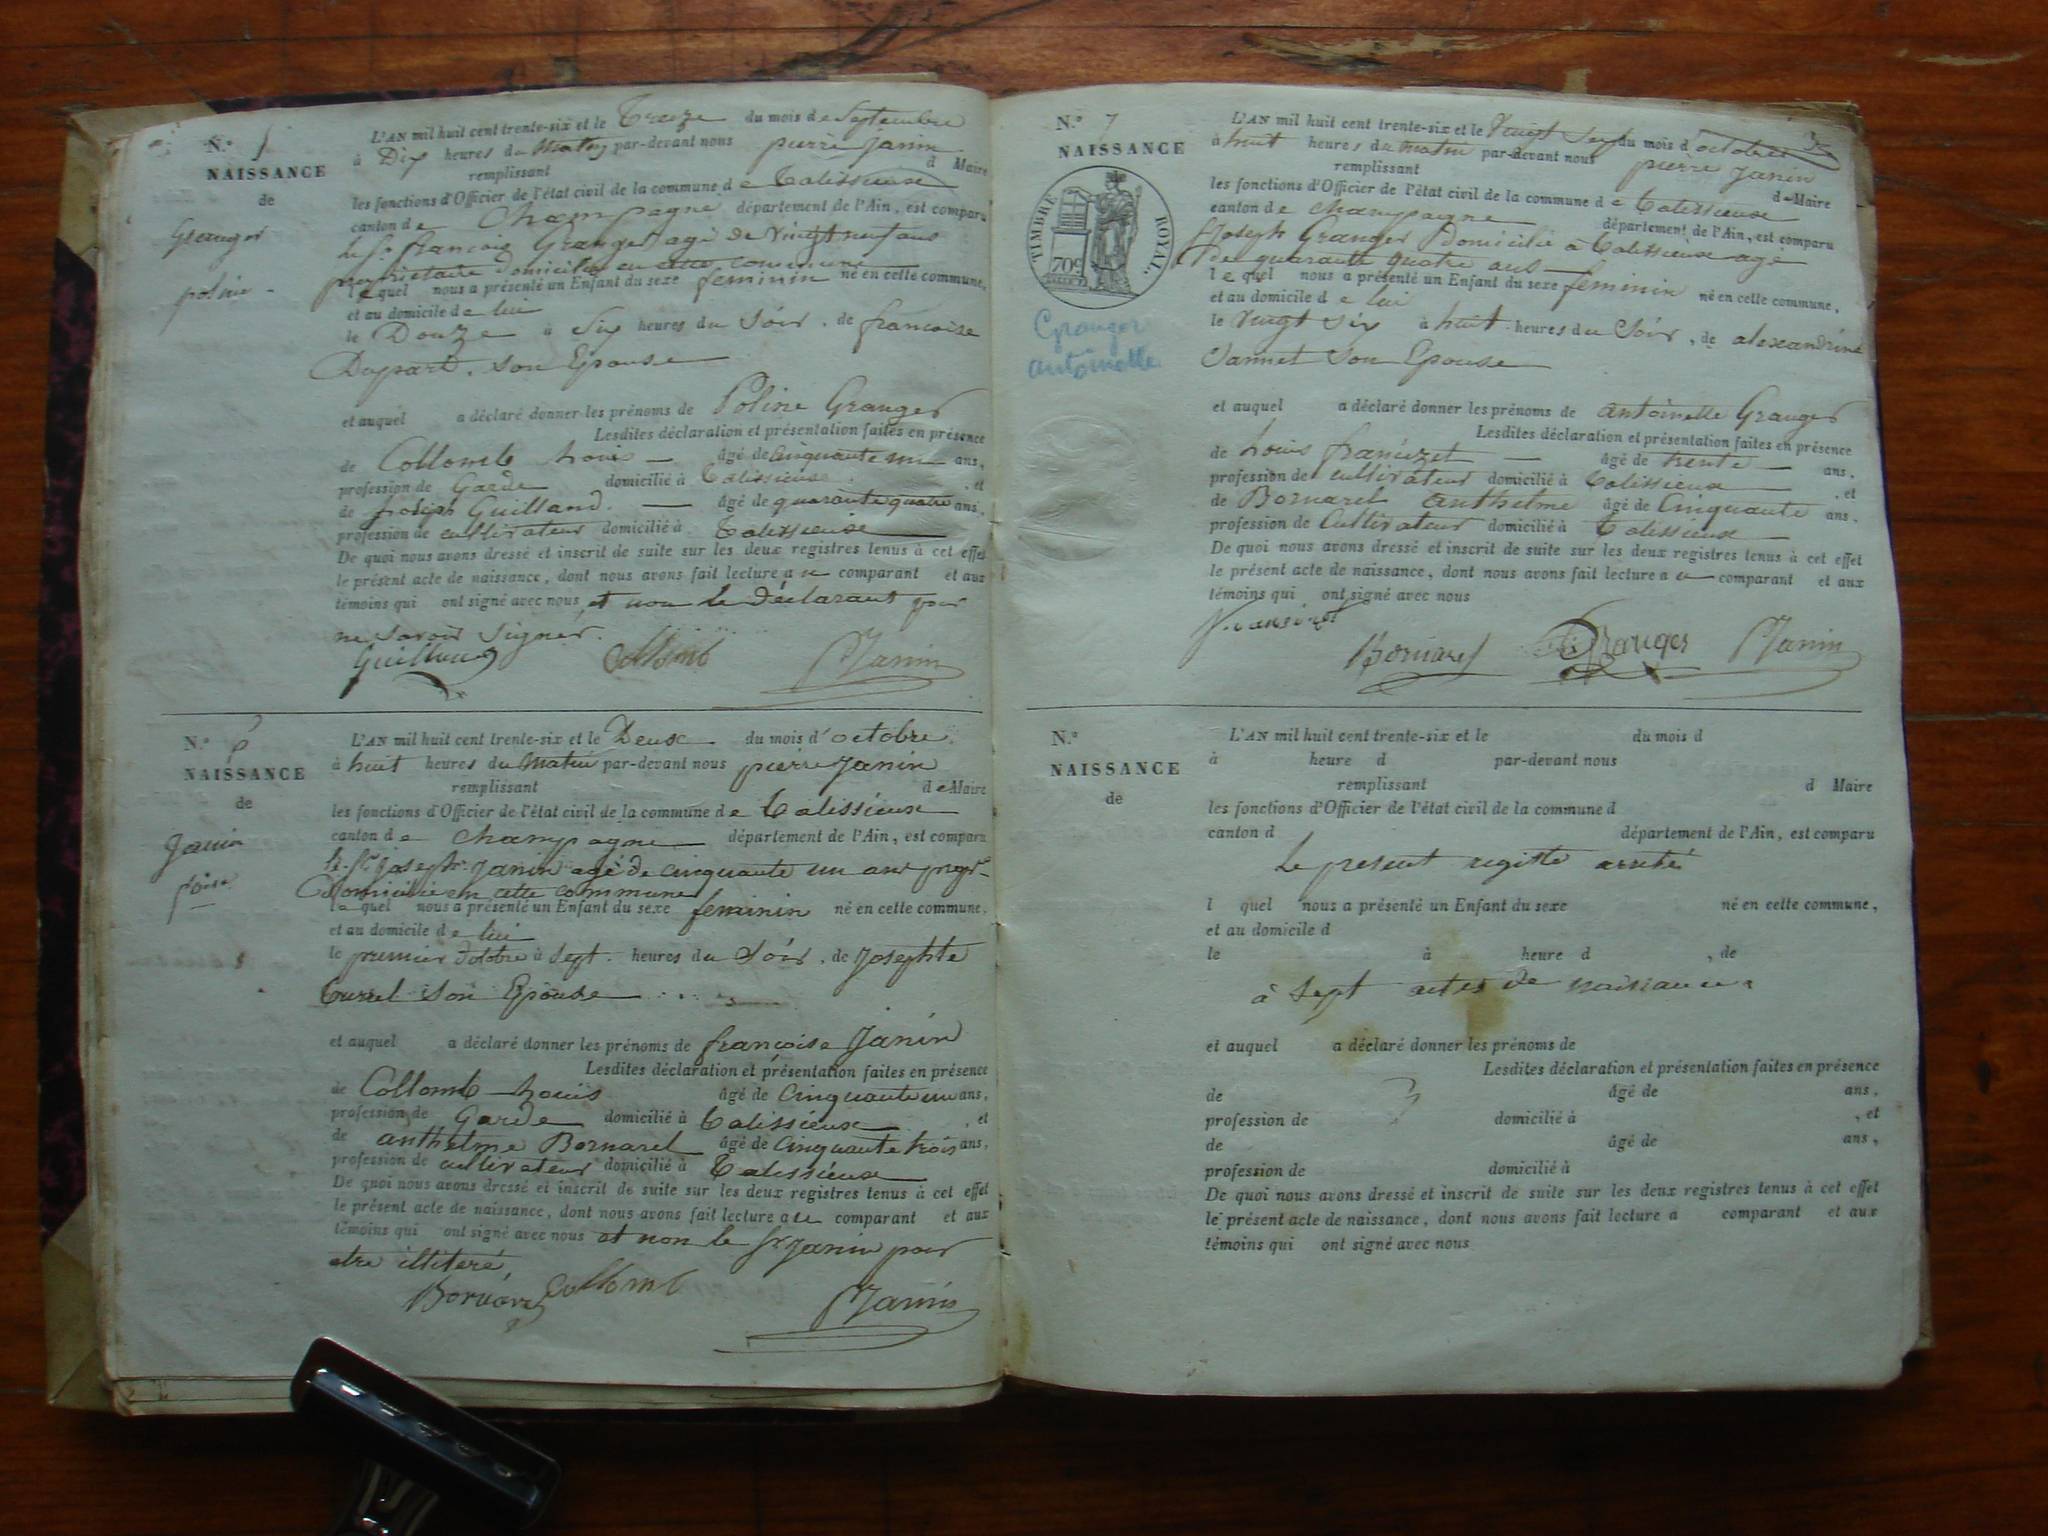 N.º 5
NAISSANCE
de
Granger
poline
L'AN mil huit cent trente-six et le Treize du mois de Septembre
à Dix heures du Matin par-devant nous pierre janin
remplissant d Maire
les fonctions d'Officier de l'état civil de la commune de Talissieux
canton de Champagne département de l'Ain, est comparu
le Sr francois Granger agé de vingt neuf ans
proprietaire domicilié en cette commune
lequel nous a présenté un Enfant du sexe feminin né en cette commune,
et au domicile de lui
le Douze à Six heures du Soir, de francoise
Dupard, son Epouse
et auquel a déclaré donner les prénoms de Poline Granger
Lesdites déclaration et présentation faites en présence
de Collomb Louis âgé de cinquante un ans,
profession de Garde domicilié à Talissieux, et
de joseph Guilland âgé de quarante quatre ans,
profession de cultivateur domicilié à Talissieux
De quoi nous avons dressé et inscrit de suite sur les deux registres tenus à cet effet
le présent acte de naissance, dont nous avons fait lecture a ce comparant et aux
témoins qui ont signé avec nous et non le Declarant pour
ne savoir signer.
Guilland Collomb PJanin
N.º 6
NAISSANCE
de
Janin
L'AN mil huit cent trente-six et le Deux du mois d'octobre
à huit heures du Matin par-devant nous pierre Janin
remplissant de Maire
les fonctions d'Officier de l'état civil de la commune de Talissieux
canton de Champagne département de l'Ain, est comparu
le Sr joseph Janin agé de cinquante un ans propr
Domicilié en cette commune
lequel nous a présenté un Enfant du sexe feminin né en cette commune,
et au domicile de lui
le premier d'octobre à Sept heures du Soir, de Josephte
son Epouse
et auquel a déclaré donner les prénoms de françoise Janin
Lesdites déclaration et présentation faites en présence
de Collomb Louis âgé de Cinquante un ans,
profession de Garde domicilié à Talissieux, et
de anthelme Bornarel âgé de Cinquante trois ans,
profession de cultivateur domicilié à Talissieux
De quoi nous avons dressé et inscrit de suite sur les deux registres tenus à cet effet
le présent acte de naissance, dont nous avons fait lecture a ce comparant et aux
témoins qui ont signé avec nous et non le Sr Janin pour
etre illiteré,
Bornarel Collomb PJanin
N.º 7
NAISSANCE
TIMBRE ROYAL.
70c
Granger
antoinette
L'AN mil huit cent trente-six et le Vingt Sept du mois d'octobre
à huit heures du matin par-devant nous pierre Janin
remplissant de Maire
les fonctions d'Officier de l'état civil de la commune de Talissieux
canton de Champagne département de l'Ain, est comparu
Joseph Granger Domicilié à Talissieux agé
de quarante quatre ans
lequel nous a présenté un Enfant du sexe feminin né en cette commune,
et au domicile de lui
le Vingt Six à huit heures du Soir, de alexandrine
Jannet son Epouse
et auquel a déclaré donner les prénoms de antoinette Granger
Lesdites déclaration et présentation faites en présence
de Louis âgé de trente ans,
profession de cultivateur domicilié à Talissieux, et
de Bornarel anthelme âgé de Cinquante ans,
profession de Cultivateur domicilié à Talissieux
De quoi nous avons dressé et inscrit de suite sur les deux registres tenus à cet effet
le présent acte de naissance, dont nous avons fait lecture a ce comparant et aux
témoins qui ont signé avec nous
Bornarel Granger PJanin
N.º
NAISSANCE
de
L'AN mil huit cent trente-six et le du mois d
à heure d par-devant nous
remplissant d Maire
les fonctions d'Officier de l'état civil de la commune d
canton d département de l'Ain, est comparu
Le present registe arreté
l quel nous a présenté un Enfant du sexe né en cette commune,
et au domicile d
le à heure d , de
à Sept actes de naissance
et auquel a déclaré donner les prénoms de
Lesdites déclaration et présentation faites en présence
de âgé de ans,
profession de domicilié à , et
de âgé de ans,
profession de domicilié à
De quoi nous avons dressé et inscrit de suite sur les deux registres tenus à cet effet
le présent acte de naissance, dont nous avons fait lecture a comparant et aux
témoins qui ont signé avec nous